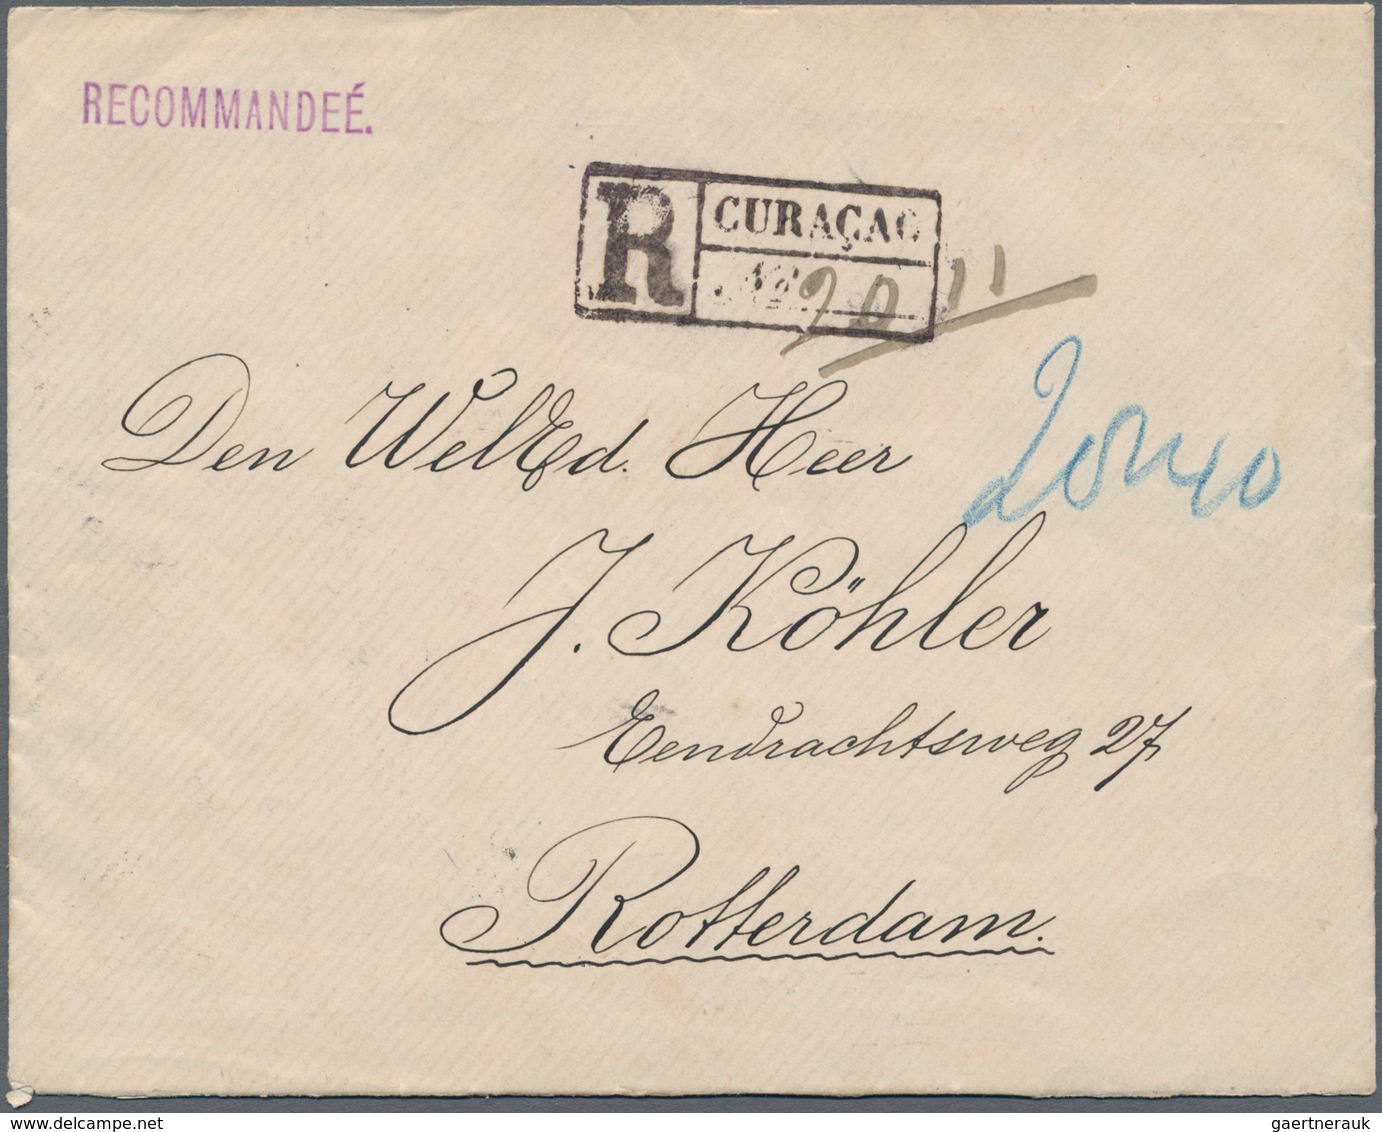 RECOMMANDEÉ.
R CURAÇAO
20
Den WelEd. Heer
J. Köhler
Eendrachtsweg 27
Rotterdam.
www.delcampe.net
gaertnerauk